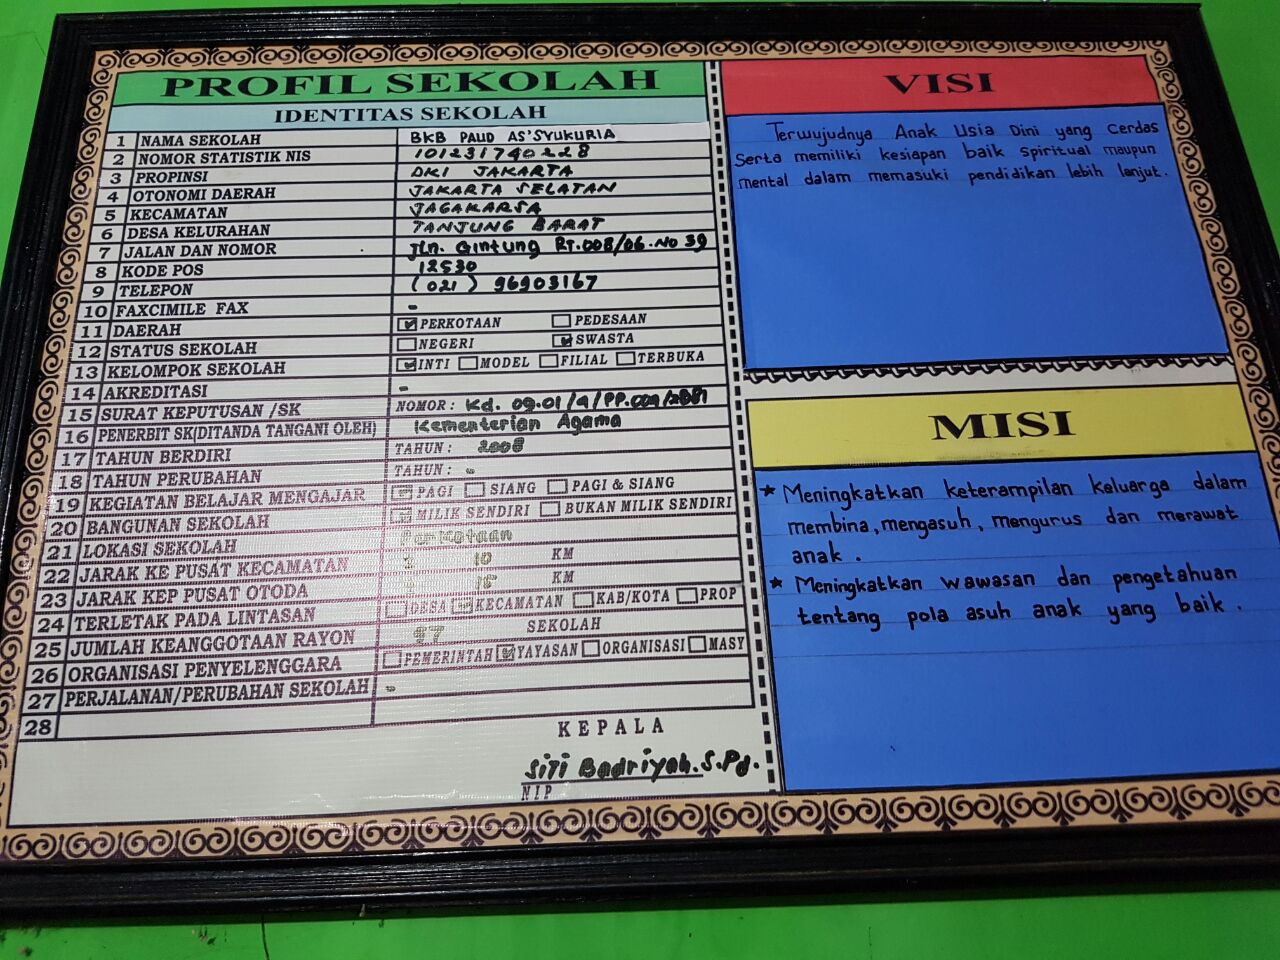 PROFIL SEKOLAH
IDENTITAS SEKOLAH
1 NAMA SEKOLAH BKB PAUD AS'SYUKURIA
2 NOMOR STATISTIK NIS 101231740228
3 PROPINSI DKI JAKARTA
4 OTONOMI DAERAH JAKARTA SELATAN
5 KECAMATAN JAGAKARSA
6 DESA KELURAHAN TANJUNG BARAT
7 JALAN DAN NOMOR Jln. Gintung RT.008/06.No 39
8 KODE POS 12530
9 TELEPON (021) 96903167
10 FAXCIMILE FAX -
11 DAERAH PERKOTAAN PEDESAAN
12 STATUS SEKOLAH NEGERI SWASTA
13 KELOMPOK SEKOLAH INTI MODEL FILIAL TERBUKA
14 AKREDITASI -
15 SURAT KEPUTUSAN /SK NOMOR : Kd. 09.01/4/PP.00
16 PENERBIT SK(DITANDA TANGANI OLEH) Kementerian Agama
17 TAHUN BERDIRI TAHUN : 2008
18 TAHUN PERUBAHAN TAHUN : -
19 KEGIATAN BELAJAR MENGAJAR PAGI SIANG PAGI & SIANG
20 BANGUNAN SEKOLAH MILIK SENDIRI BUKAN MILIK SENDIRI
21 LOKASI SEKOLAH Perkotaan
22 JARAK KE PUSAT KECAMATAN 10 KM
23 JARAK KEP PUSAT OTODA 15 KM
24 TERLETAK PADA LINTASAN DESA KECAMATAN KAB/KOTA PROP
25 JUMLAH KEANGGOTAAN RAYON SEKOLAH
26 ORGANISASI PENYELENGGARA PEMERINTAH YAYASAN ORGANISASI MASY
27 PERJALANAN/PERUBAHAN SEKOLAH -
28
KEPALA
Siti Badriyah.S.Pd.
NIP
VISI
Terwujudnya Anak Usia Dini yang Cerdas
Serta memiliki kesiapan baik spiritual maupun
mental dalam memasuki pendidikan lebih lanjut.
MISI
* Meningkatkan keterampilan keluarga dalam
membina, mengasuh, mengurus dan merawat
anak.
* Meningkatkan wawasan dan pengetahuan
tentang pola asuh anak yang baik.